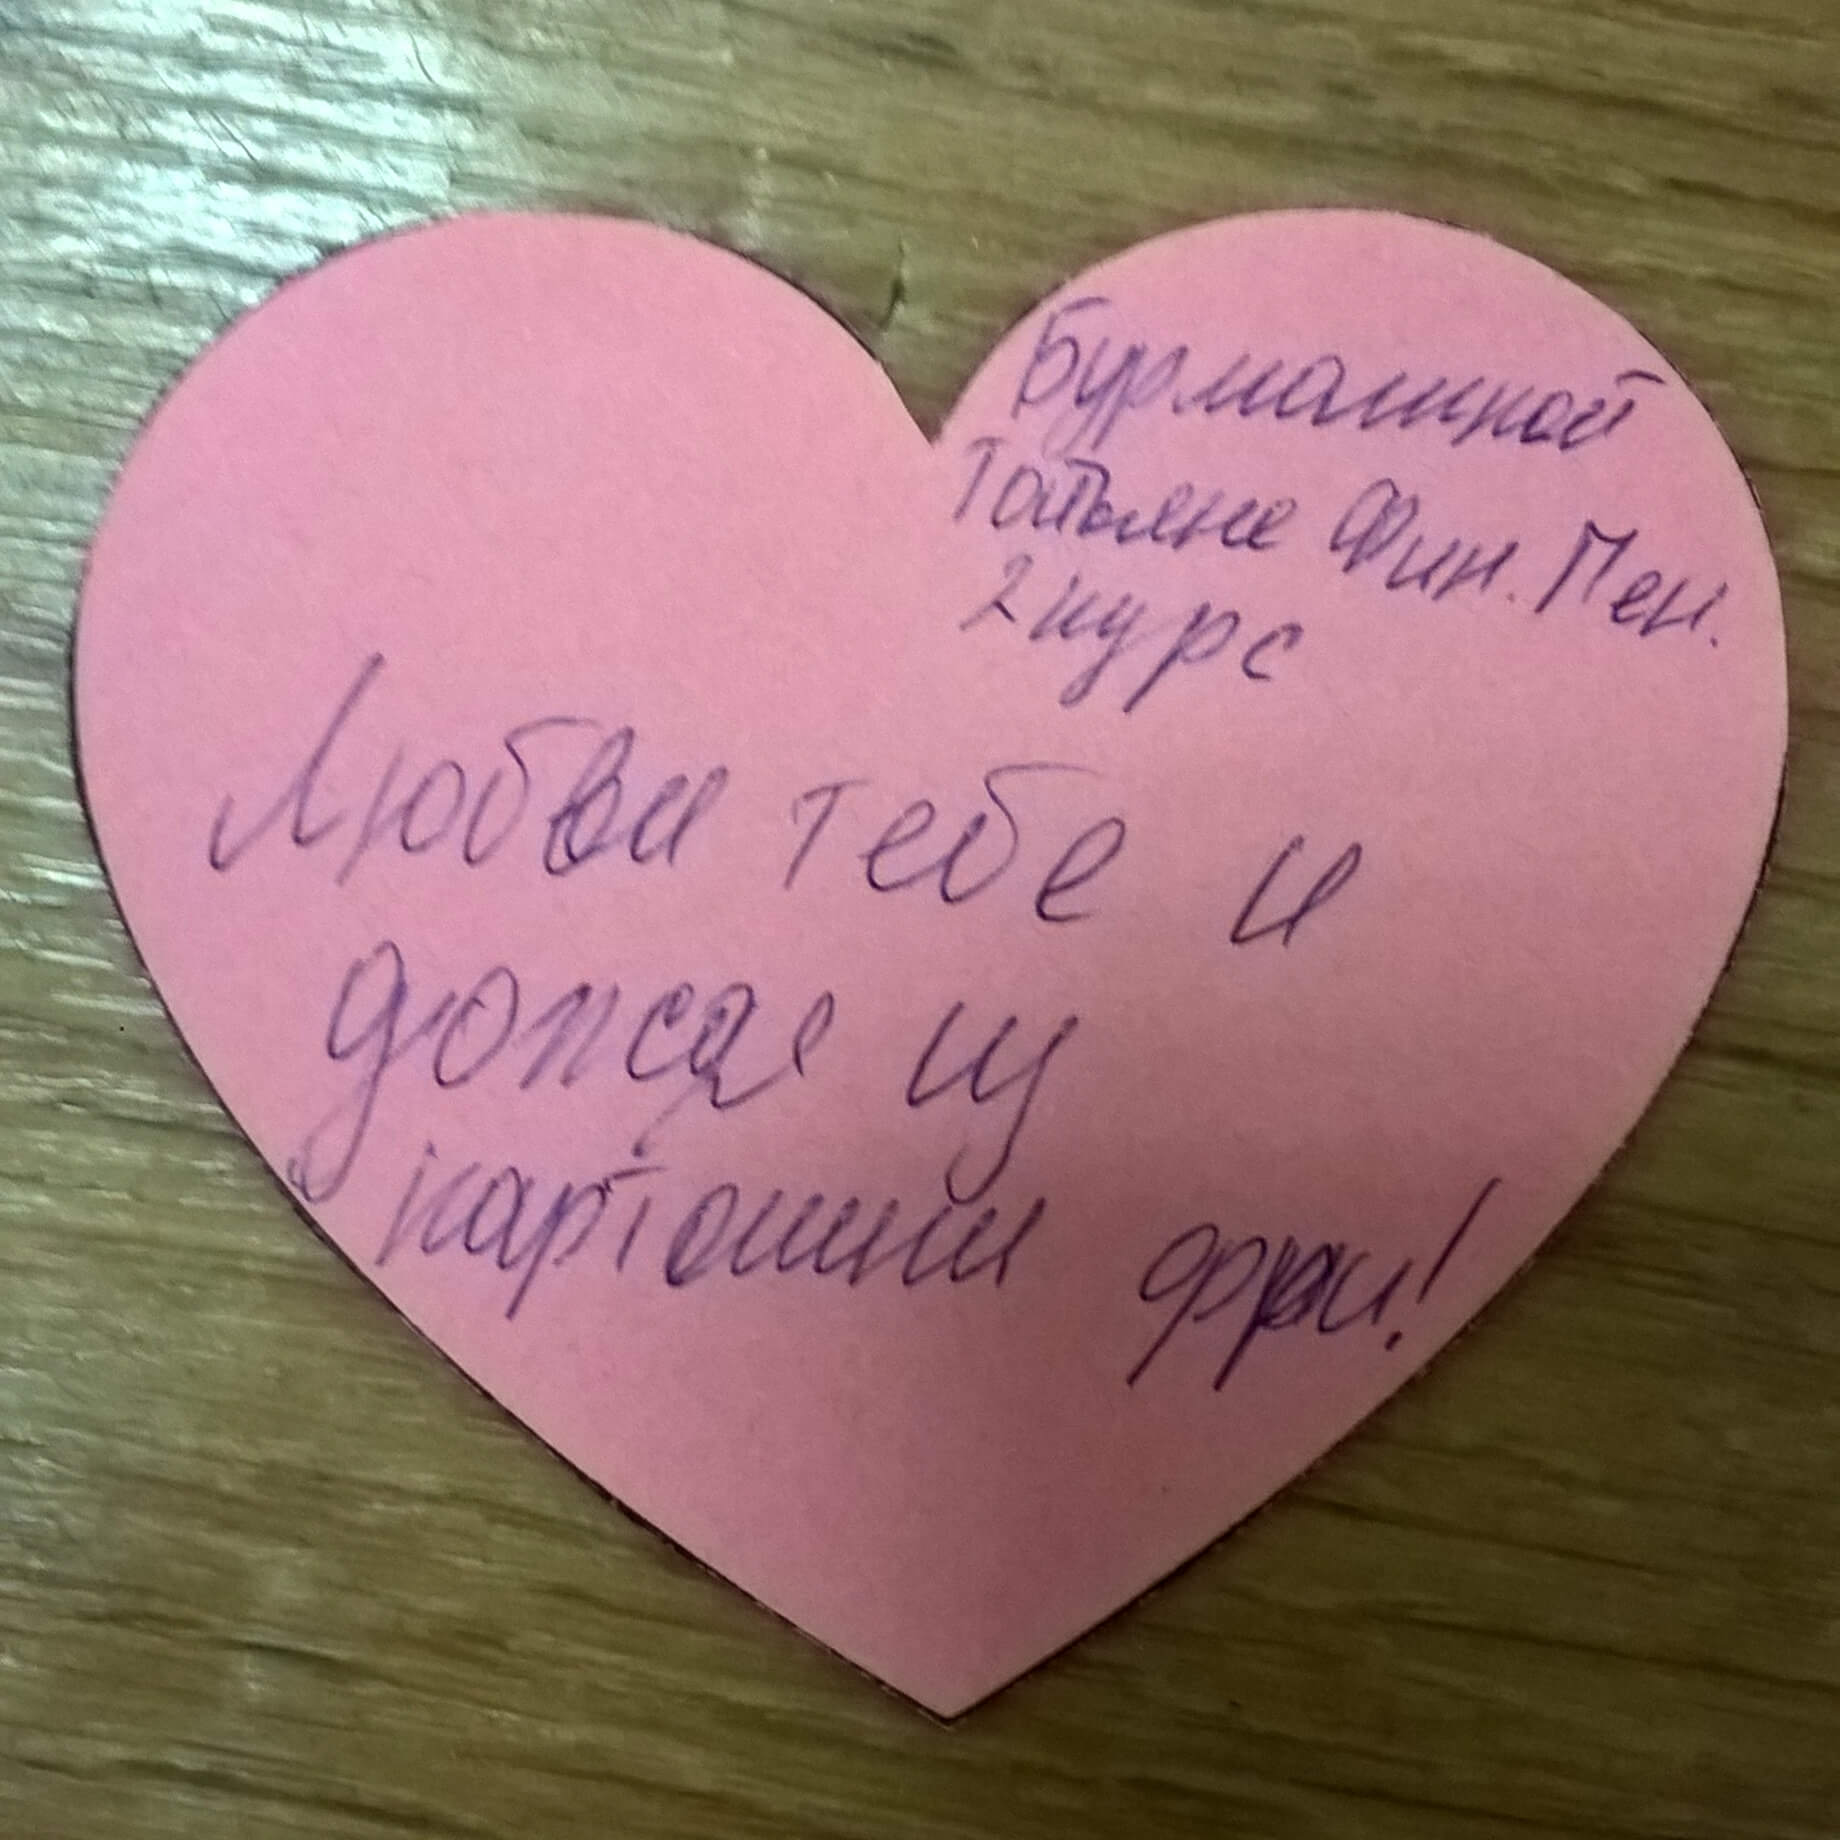 Бурмашной
Татьяне Фин. Мен.
2 курс
Любви тебе и
дождя из
картошки фри!